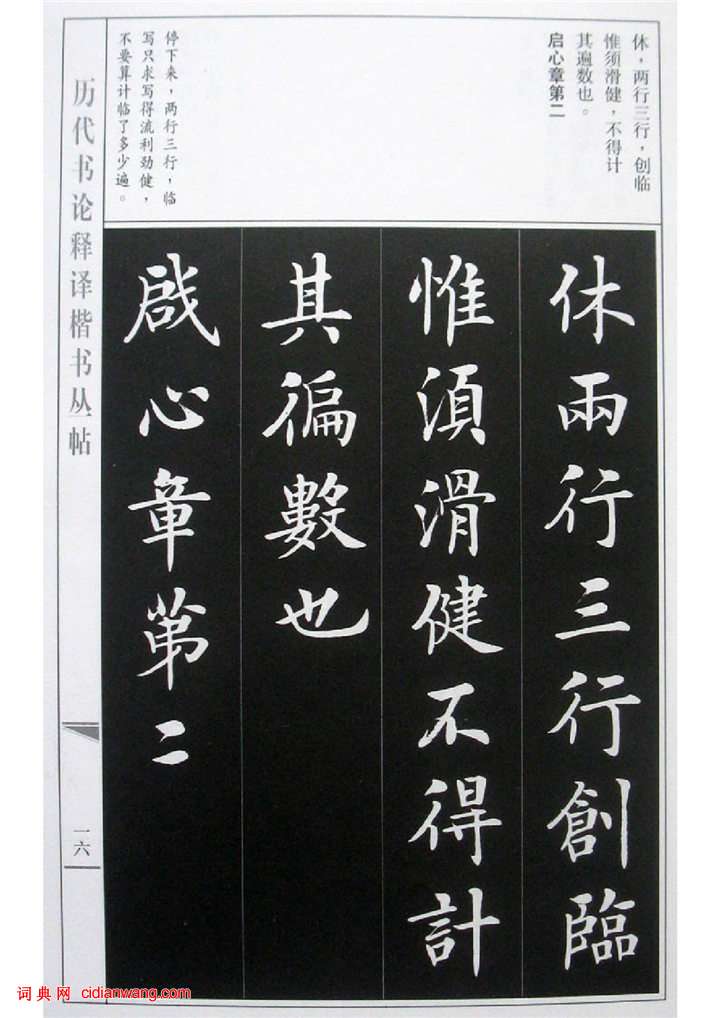 休，两行三行，创临
惟须滑健，不得计
其遍数也。
启心章第二
停下来，两行三行，临
写只求写得流利劲健，
不要算计临了多少遍。
休兩行三行創臨
惟須滑健不得計
其徧數也
啟心章第二
历代书论释译楷书丛帖
一六
词典网 cidianwang.com